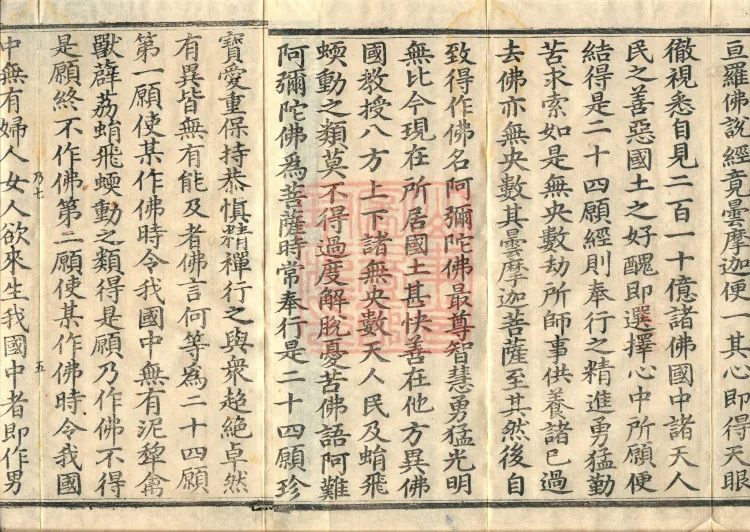 亘羅佛說經竟曇摩迦便一其心即得天眼
徹視悉自見二百一十億諸佛國中諸天人
民之善惡國土之好醜即選擇心中所願便
結得是二十四願經則奉行之精進勇猛勤
苦求索如是無央數劫所師事供養諸已過
去佛亦無央數其曇摩迦菩薩至其然後自
致得作佛名阿彌陀佛最尊智慧勇猛光明
無比今現在所居國土甚快善在他方異佛
國教授八方上下諸無央數天人民及蜎飛
蝡動之類莫不得過度解脫憂苦佛語阿難
阿彌陀佛爲菩薩時常奉行是二十四願珍
寶愛重保持恭慎精禪行之與衆超絕卓然
有異皆無有能及者佛言何等爲二十四願
第一願使某作佛時令我國中無有泥犁禽
獸薜荔蜎飛蝡動之類得是願乃作佛不得
是願終不作佛第二願使某作佛時令我國
乃七 五
中無有婦人女人欲來生我國中者即作男